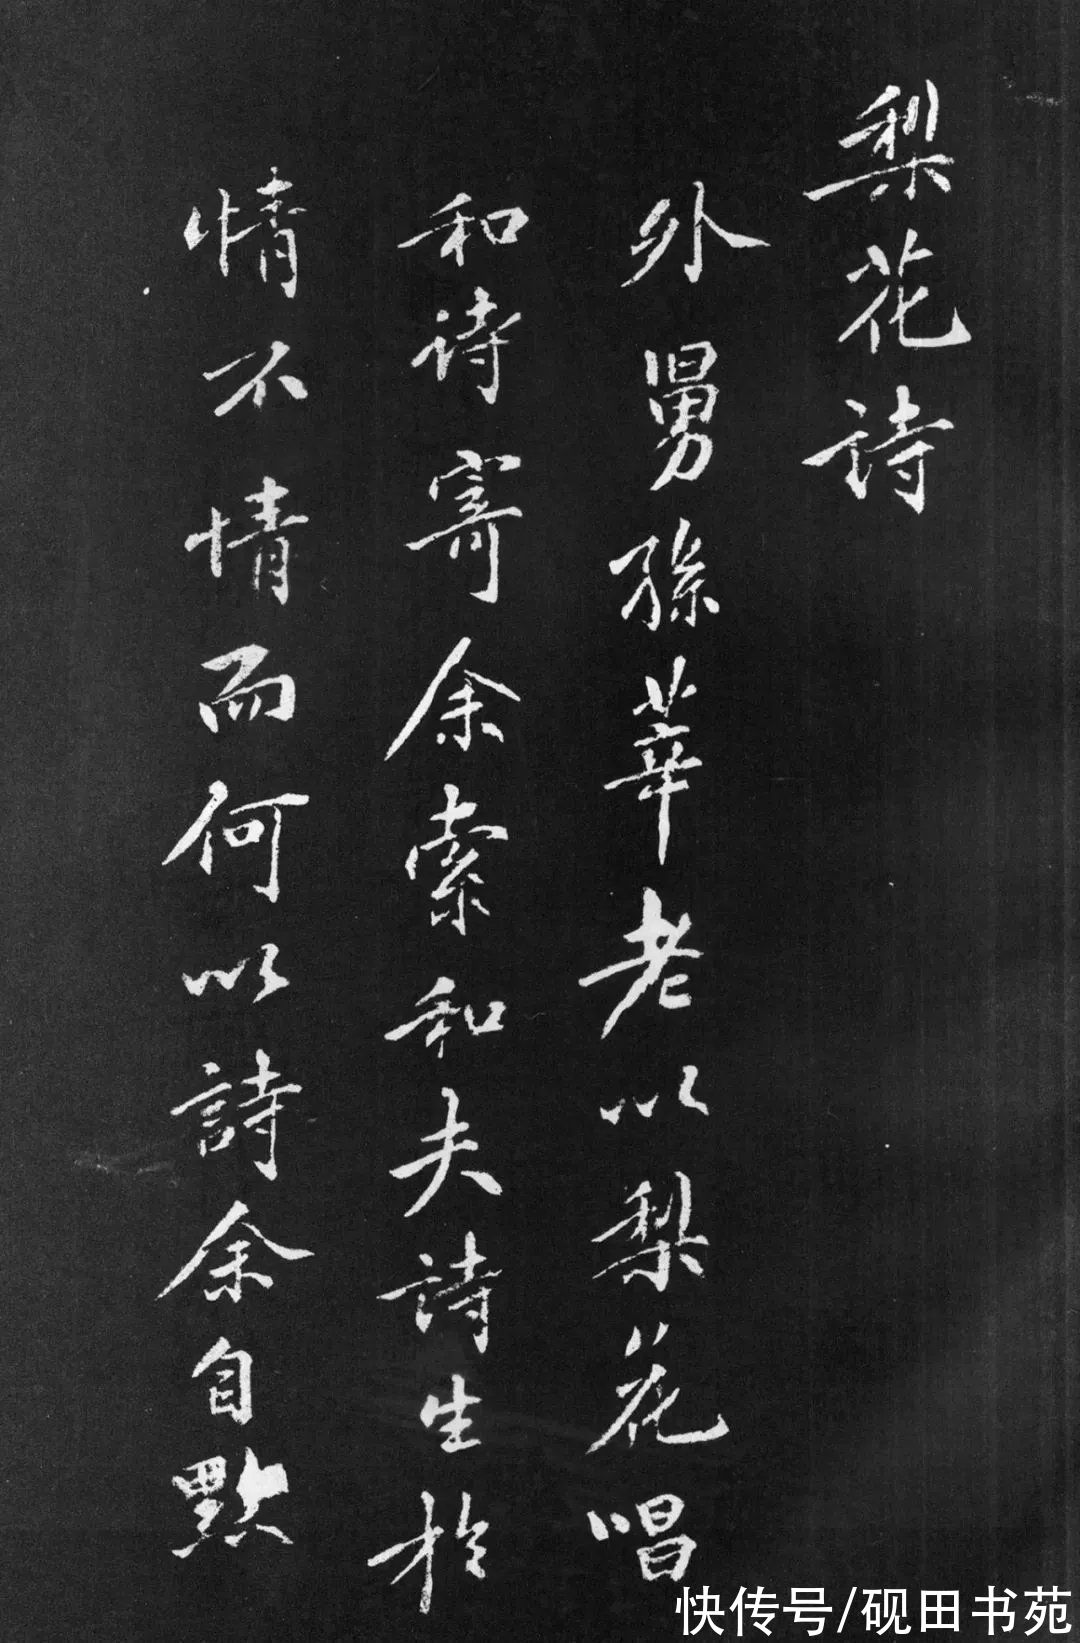 梨花詩
外舅孫莘老以梨花唱
和詩寄余索和夫詩生於
情不情而何以詩余自黙
快传号/砚田书苑